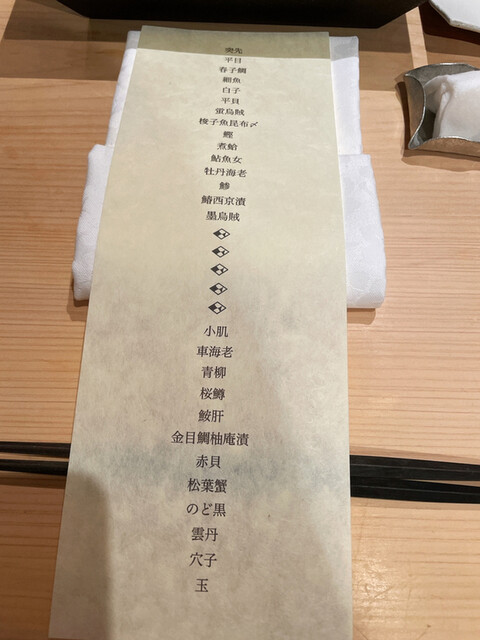 突先
平目
春子鯛
細魚
白子
平貝
蛍烏賊
梭子魚昆布〆
鰹
煮蛤
鮎魚女
牡丹海老
鯵
鰆西京漬
墨烏賊
小肌
車海老
青柳
桜鱒
鮟肝
金目鯛柚庵漬
赤貝
松葉蟹
のど黒
雲丹
穴子
玉